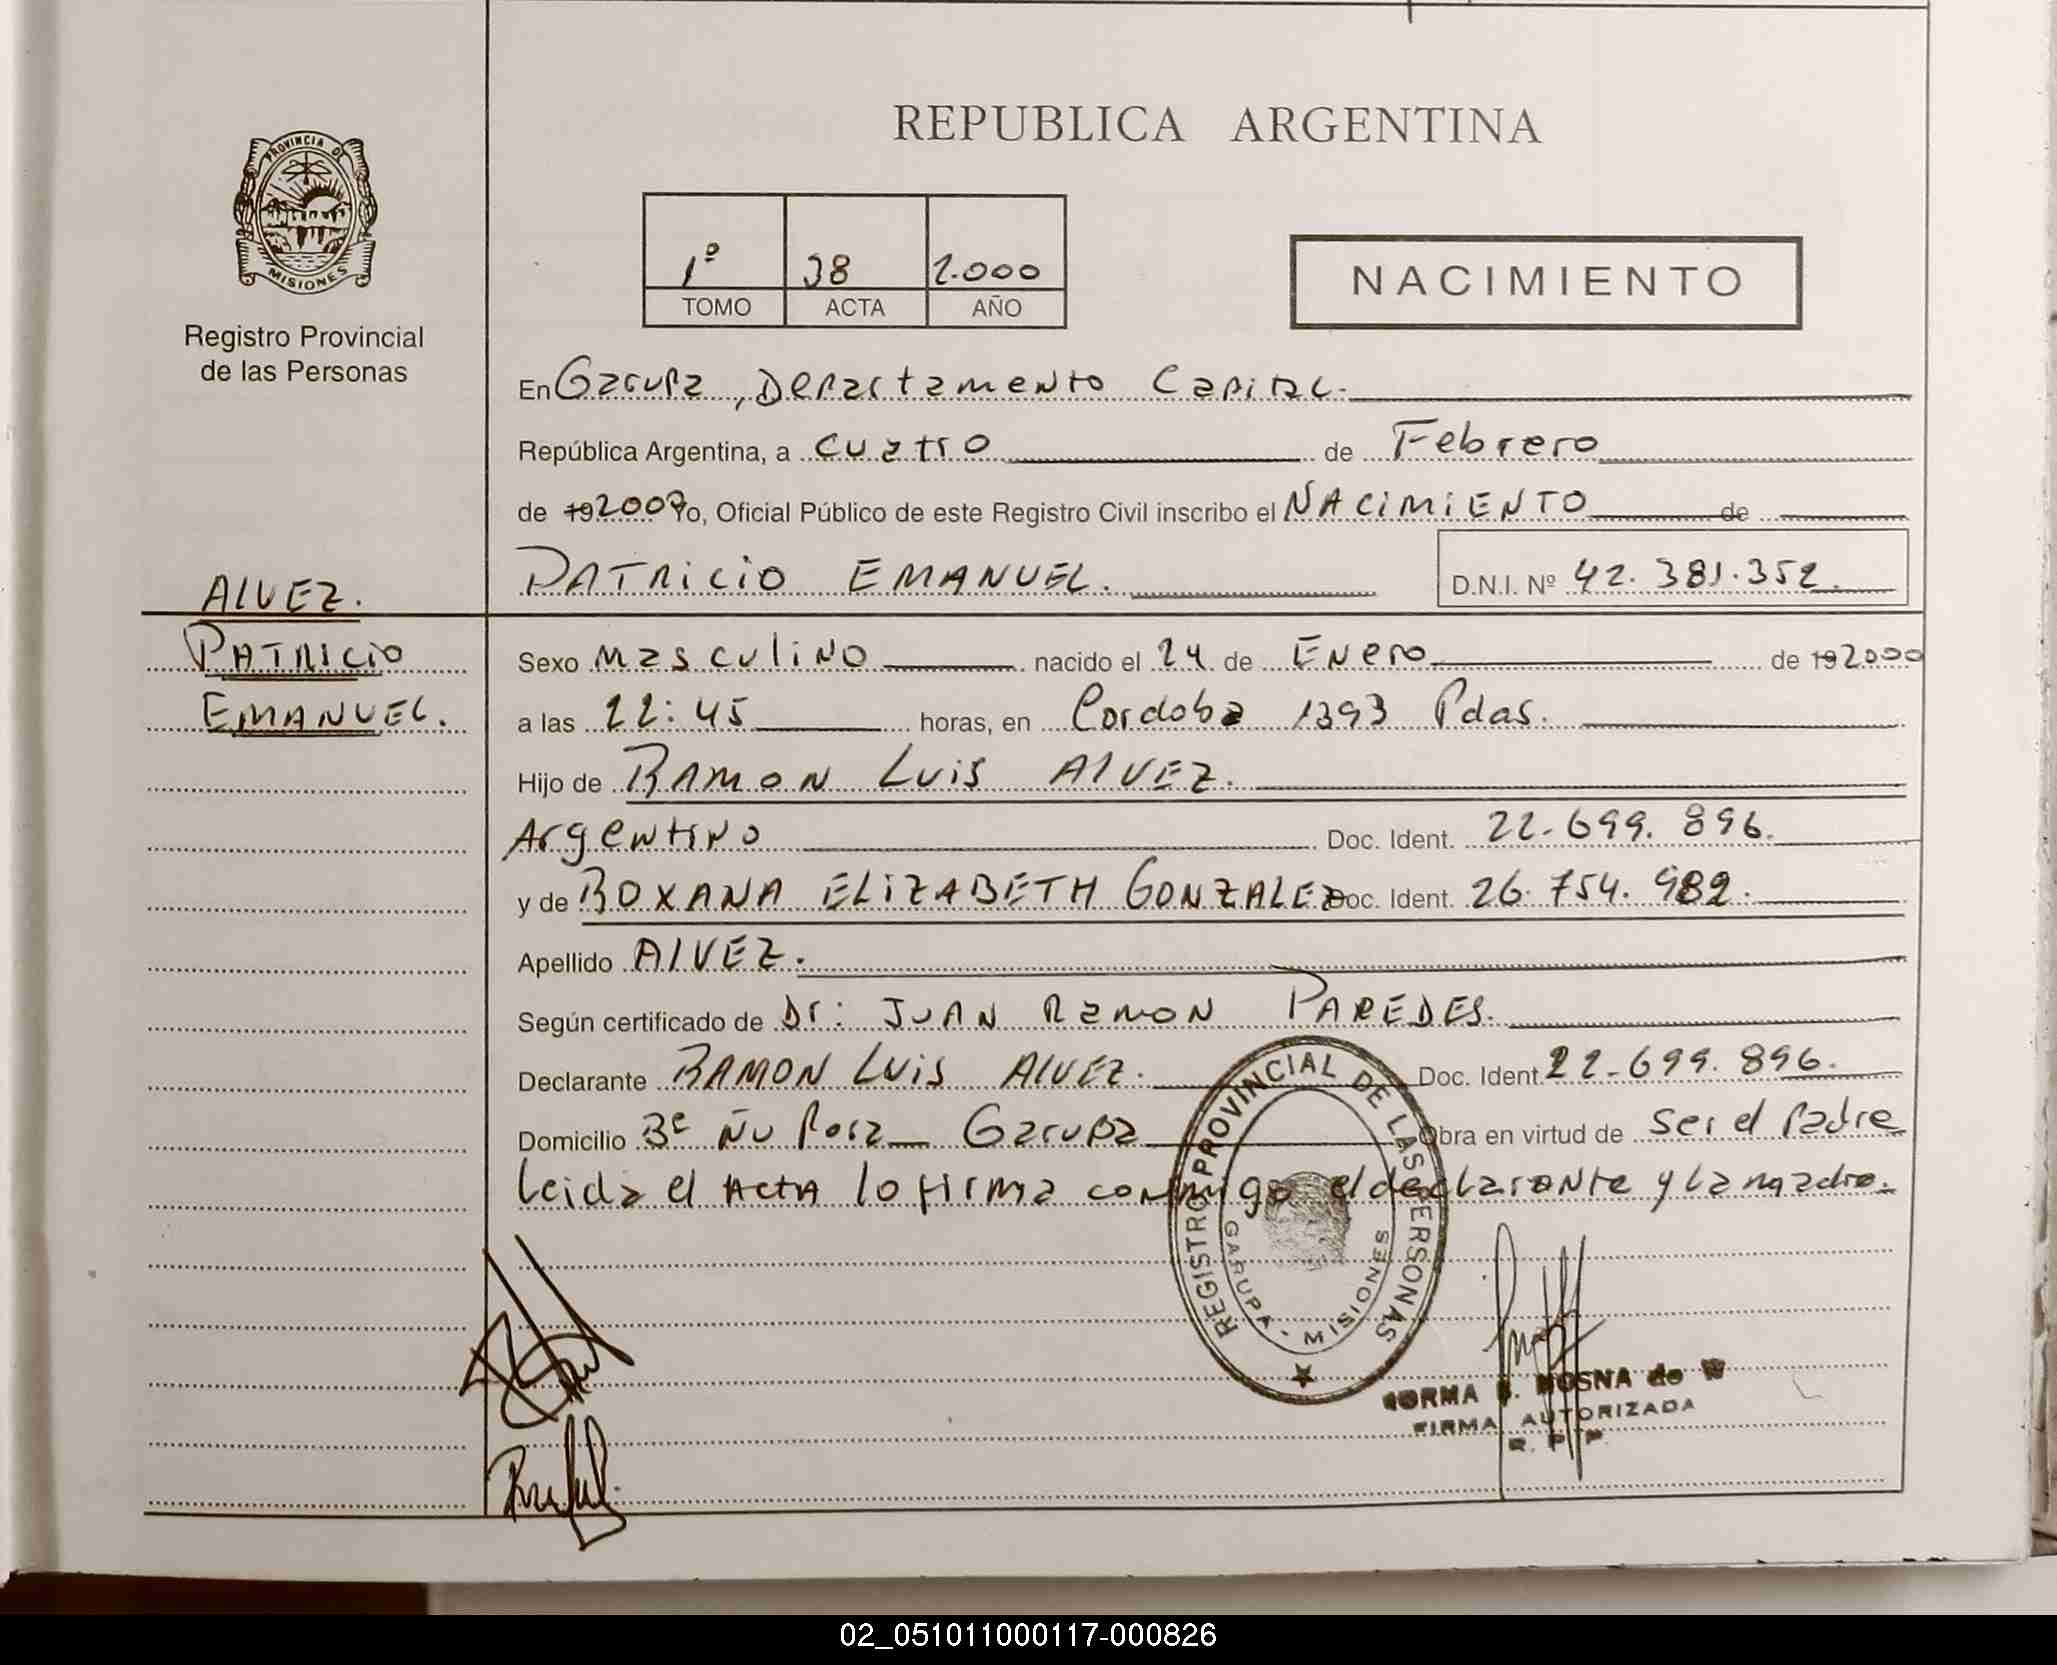 REPUBLICA ARGENTINA
PROVINCIA DE
MISIONES
Registro Provincial
de las Personas
1º 38 2.000
TOMO ACTA AÑO
NACIMIENTO
En Garupa, Departamento Capital.
República Argentina, a cuatro de Febrero
de 19 2000 Yo, Oficial Público de este Registro Civil inscribo el NACIMIENTO de
PATRICIO EMANUEL. D.N.I. Nº 42.381.352.
ALVEZ.
PATRICIO
EMANUEL.
Sexo masculino nacido el 24 de Enero de 19 2000
a las 22:45 horas, en Cordoba 1393 Pdas.
Hijo de RAMON LUIS ALVEZ.
Argentino Doc. Ident. 22-699.896.
y de ROXANA ELIZABETH GONZALEZ Doc. Ident. 26.754.982.
Apellido ALVEZ.
Según certificado de Dr: JUAN RAMON PAREDES.
Declarante RAMON LUIS ALVEZ. Doc. Ident. 22-699.896.
Domicilio Bº Ñu Pora Garupa Obra en virtud de ser el Padre
Leida el Acta lo firma conmigo el declarante y la madre.
REGISTRO PROVINCIAL DE LAS PERSONAS
GARUPA - MISIONES
NORMA MOSNA de W
FIRMA AUTORIZADA
R. P. P.
02_051011000117-000826